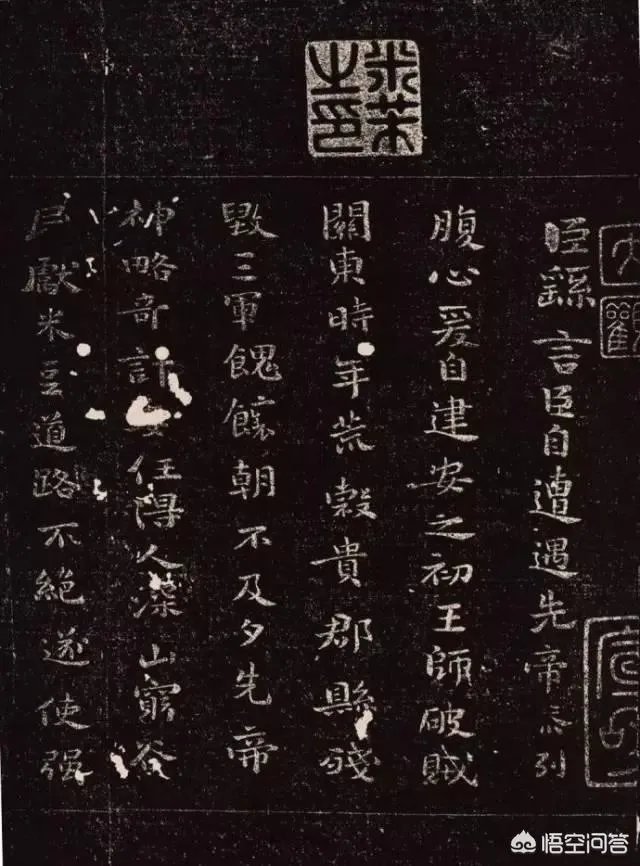 米芾之印
大觀
臣繇言臣自遭遇先帝忝列
腹心爰自建安之初王師破賊
關東時年荒穀貴郡縣殘
毀三軍餽饟朝不及夕先帝
神略奇計委任得人深山窮谷
民獻米豆道路不絕遂使强
悟空问答